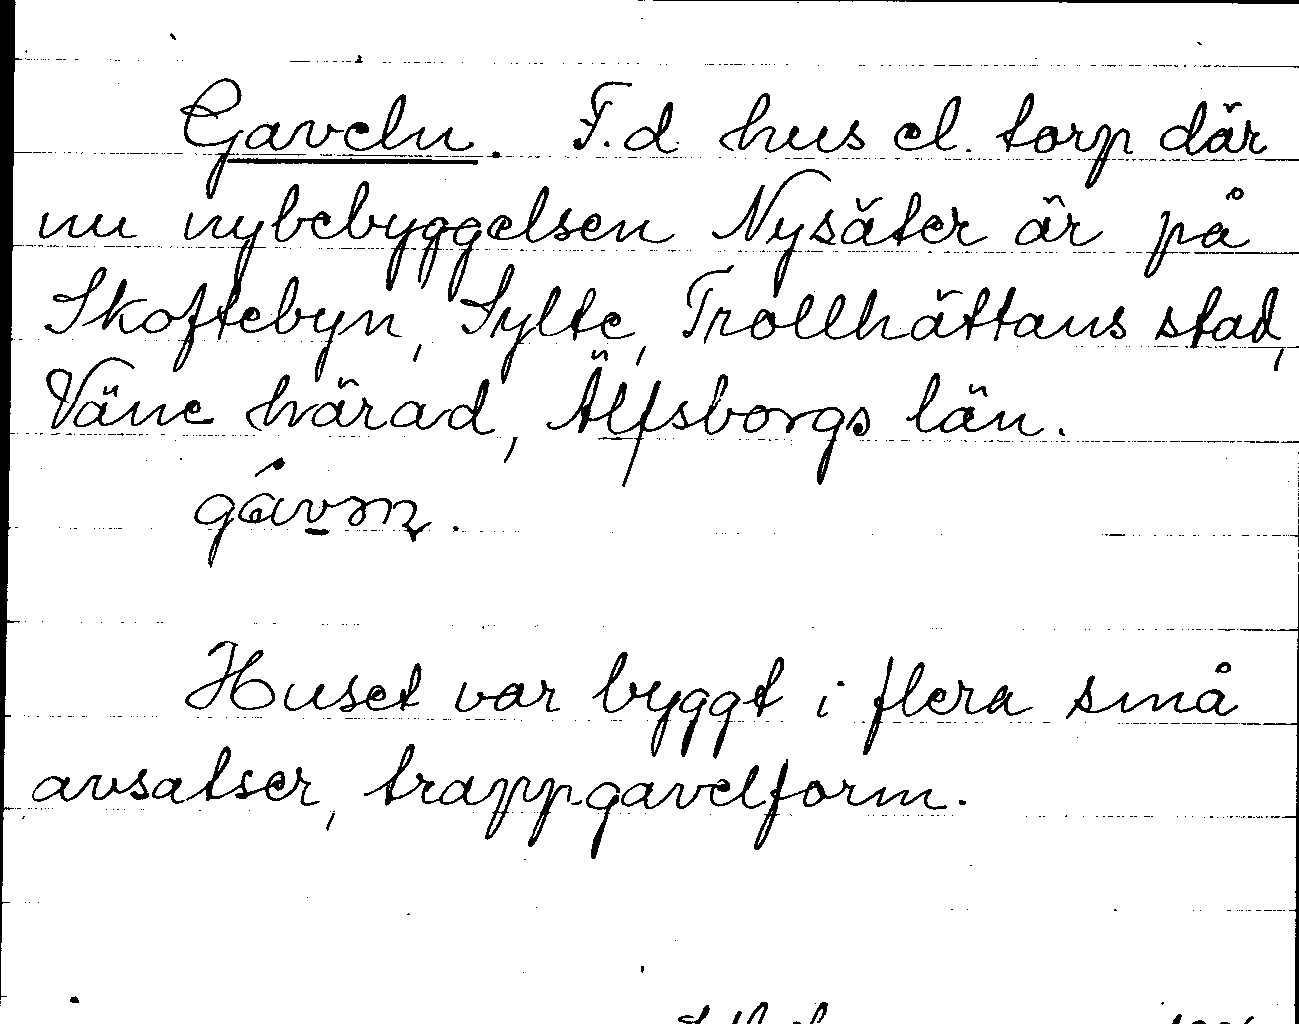 Gaveln. F.d hus el. torp där
nu nybebyggelsen Nysäter är på
Skoftebyn, Sylte, Trollhättans stad,
Väne härad, Älfsborgs län.
Huset var byggt i flera små
avsatser, trappgavelform.